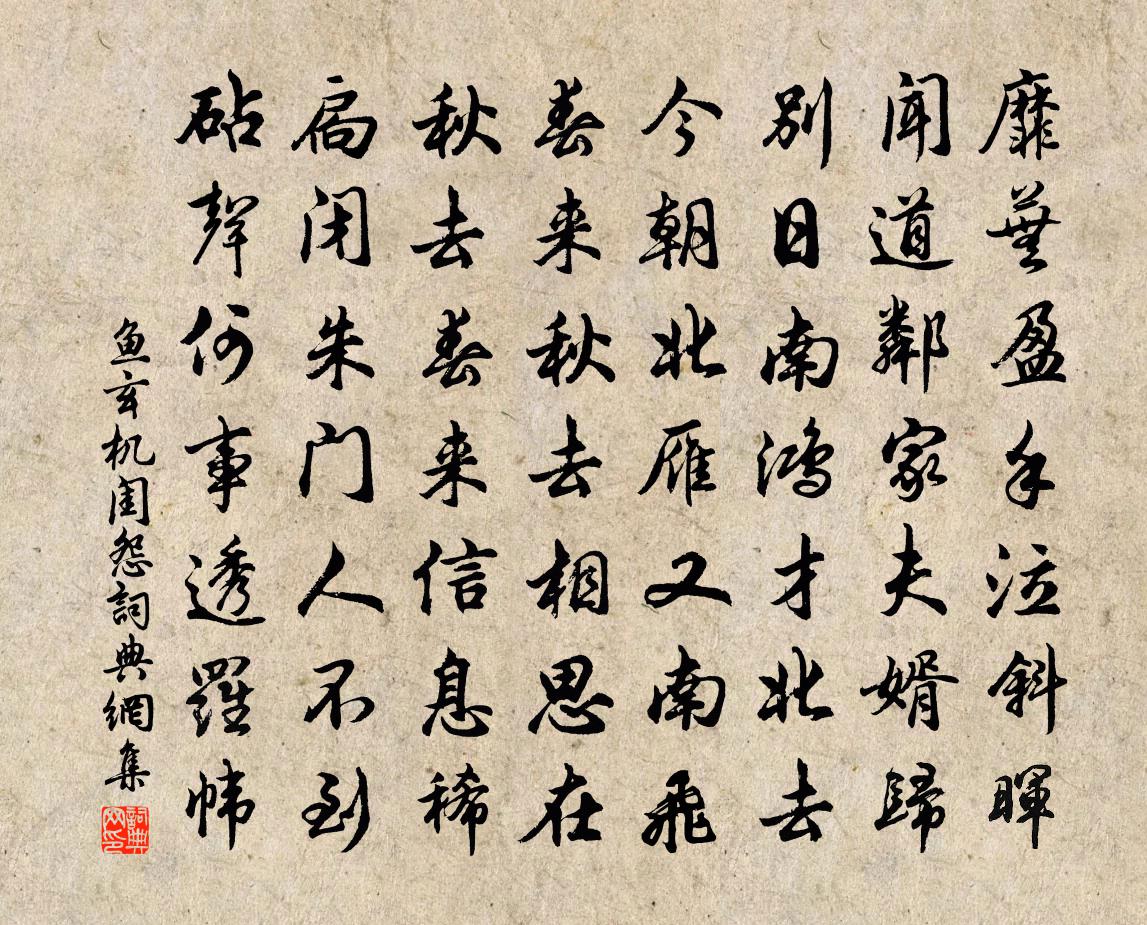 靡蕪盈手泣斜暉
闻道鄰家夫婿歸
别日南鴻才北去
今朝北雁又南飛
春来秋去相思在
秋去春来信息稀
扃闭朱门人不到
砧聲何事透羅帏
鱼玄机闺怨詞典網集
詞典网印